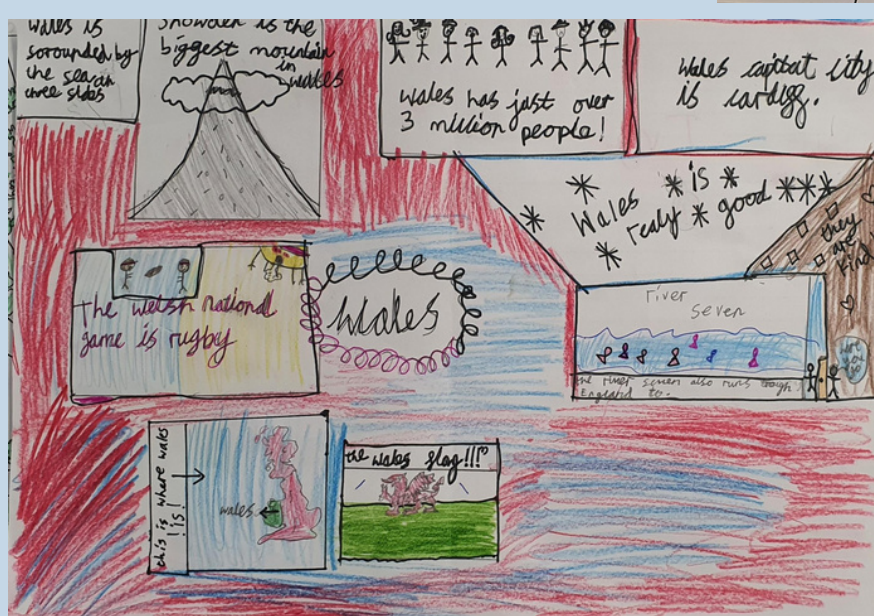 Wales is
sorounded by
the sea on
three sides
Snowden is the
biggest mountain
in
wales
Wales has just over
3 million people!
Wales capital city
is cardiff.
Wales is
realy good
they
are
kind!
the welsh national
game is rugby
Wales
river
seven
the river seven also runs
England to.
here
you
go
this is where wales
is!
wales
the wales flag!!!